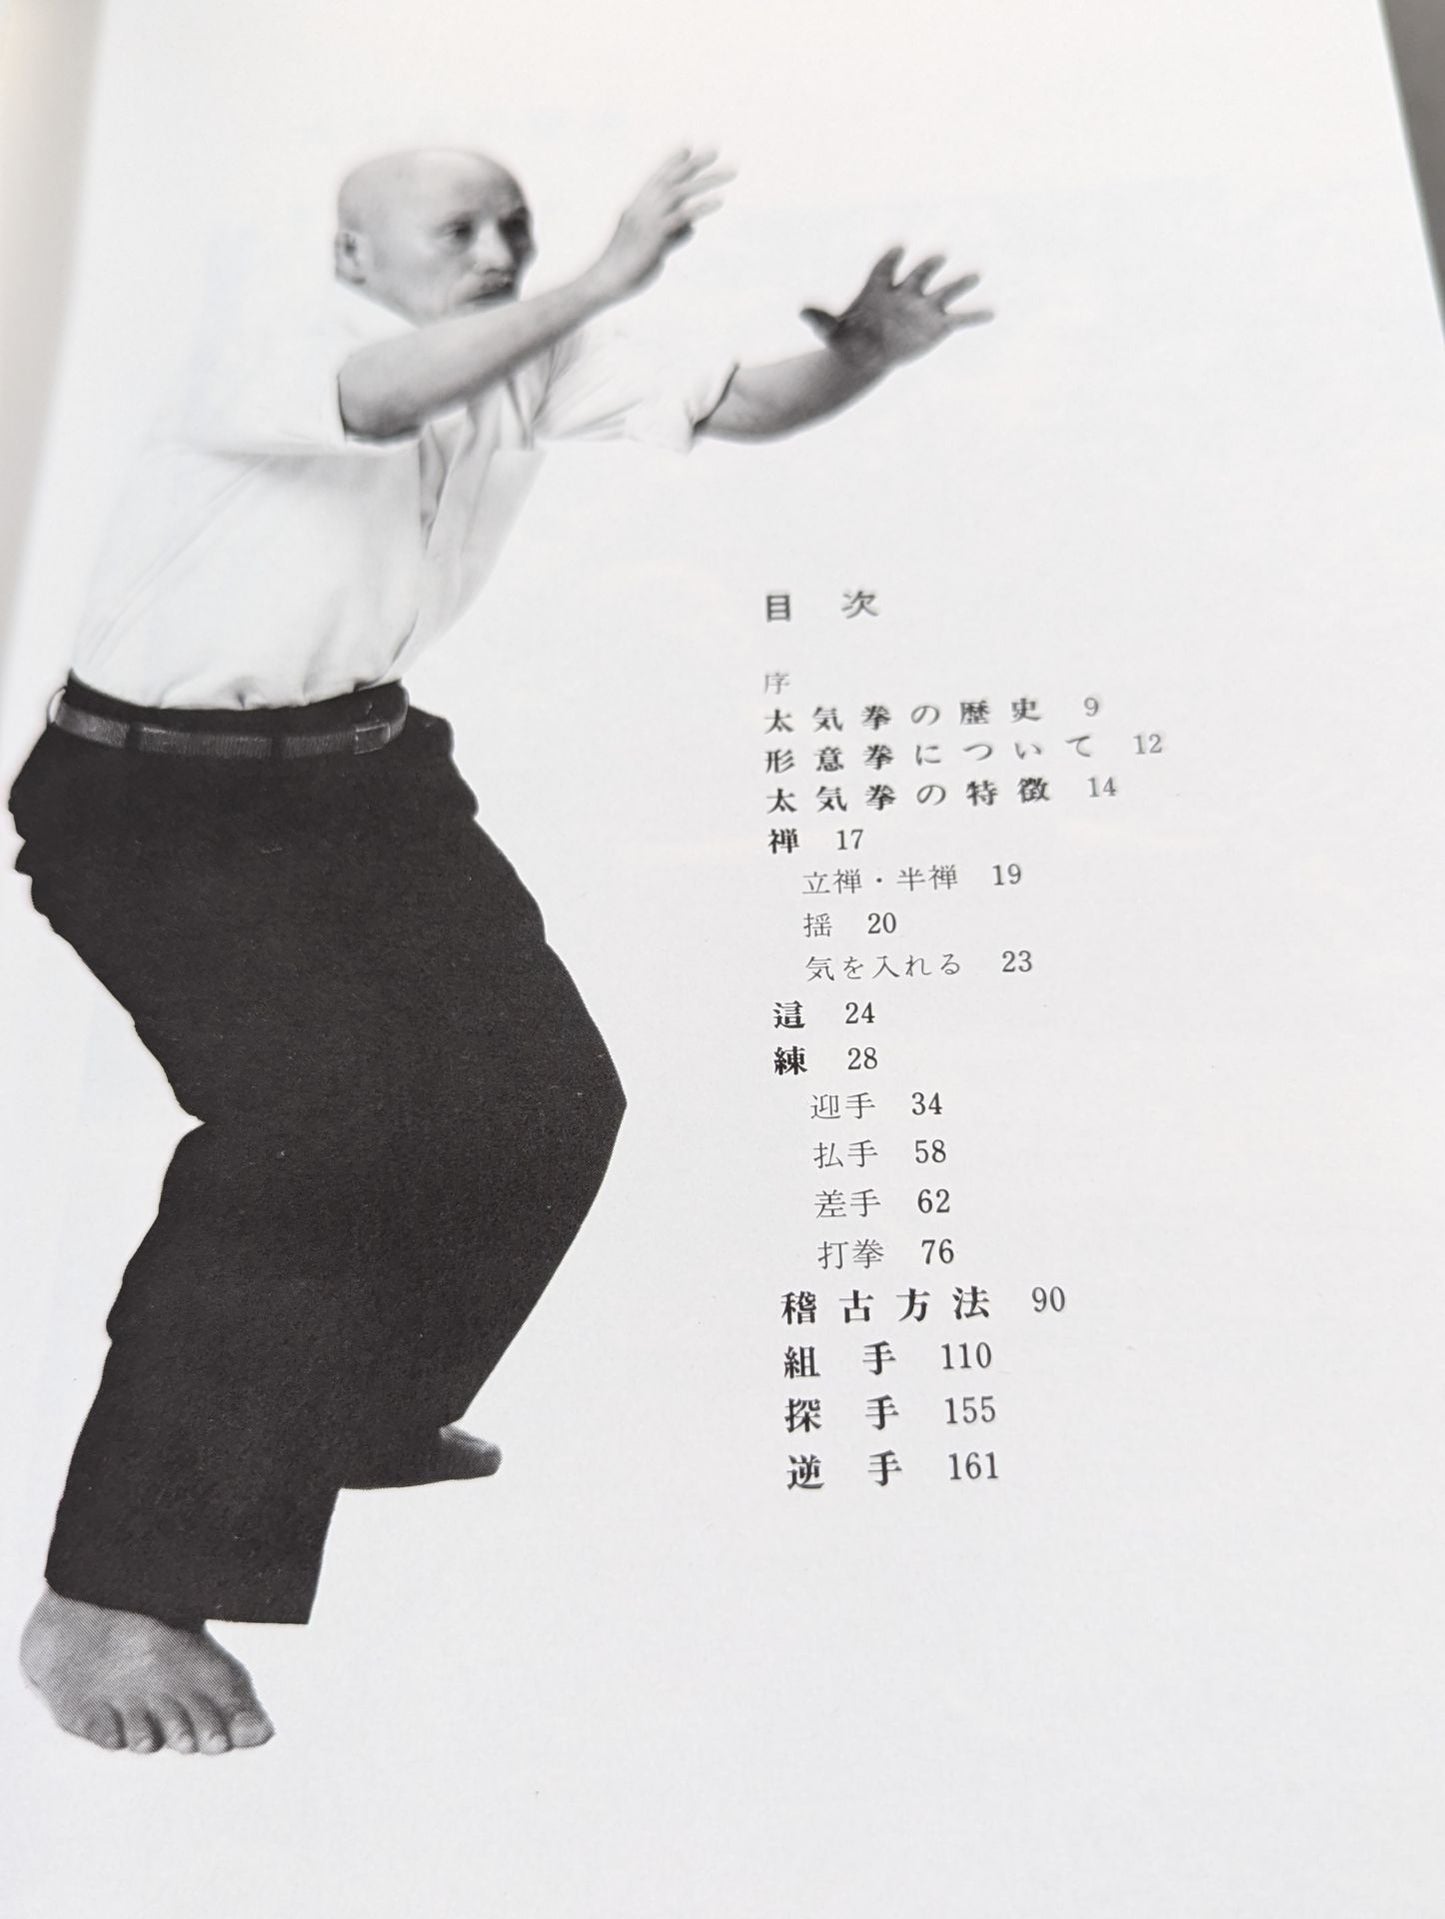 目 次
序
太気拳の歴史 9
形意拳について 12
太気拳の特徴 14
禅 17
立禅・半禅 19
揺 20
気を入れる 23
這 24
練 28
迎手 34
払手 58
差手 62
打拳 76
稽古方法 90
組手 110
探手 155
逆手 161